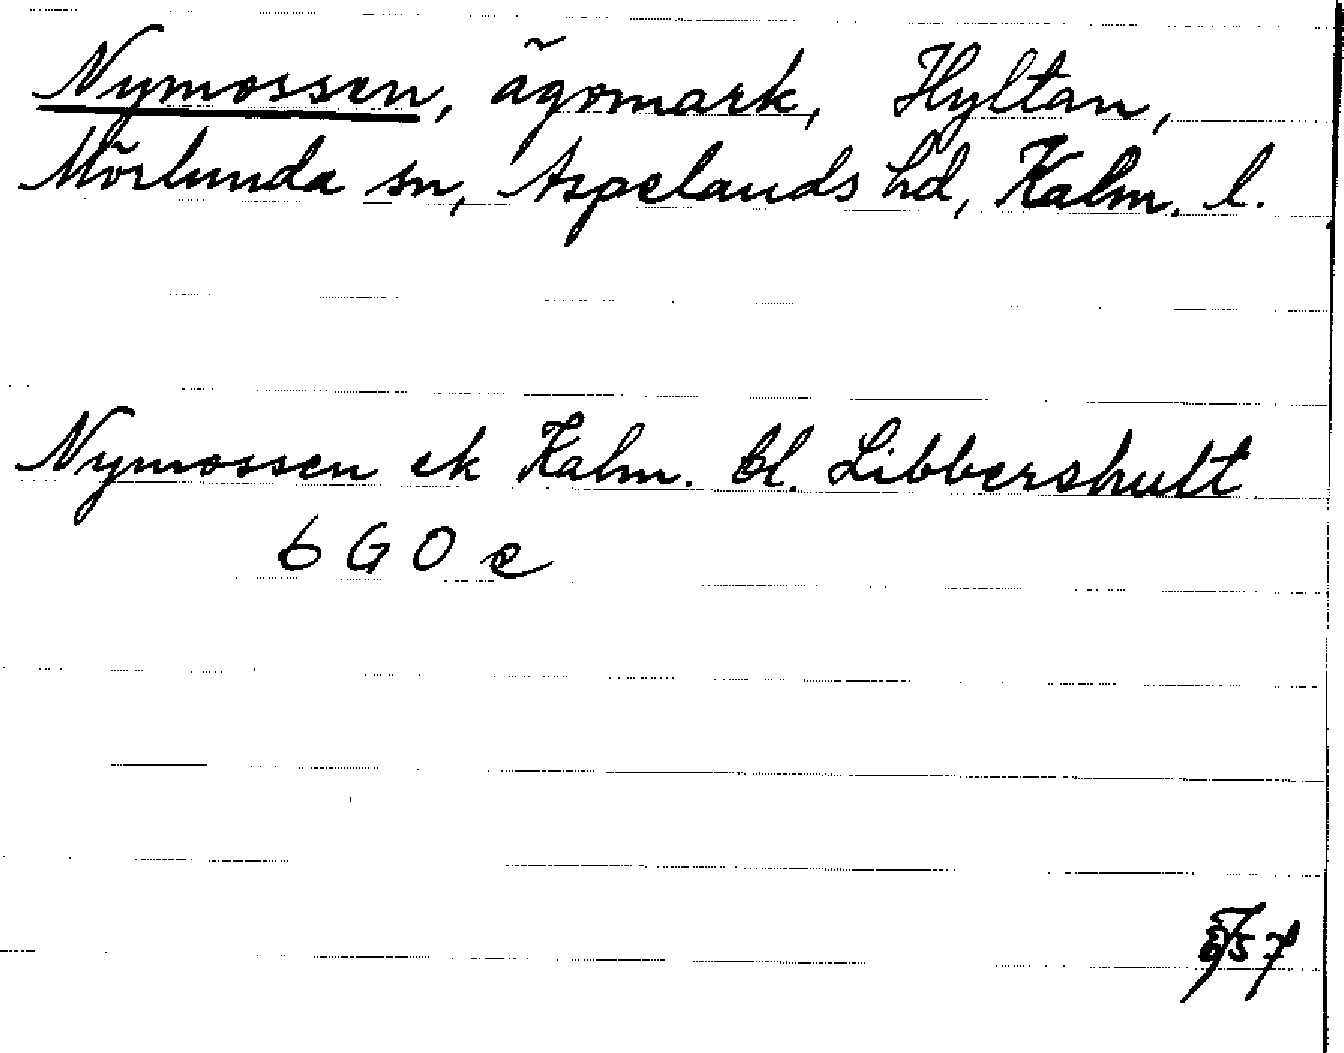 Nymossen, ägomark, Hyltan,
Mörlunda sn, Aspelands hd, Kalm. l.
Nymossen ek Kalm. bl. Libbershult
6 G 0 e